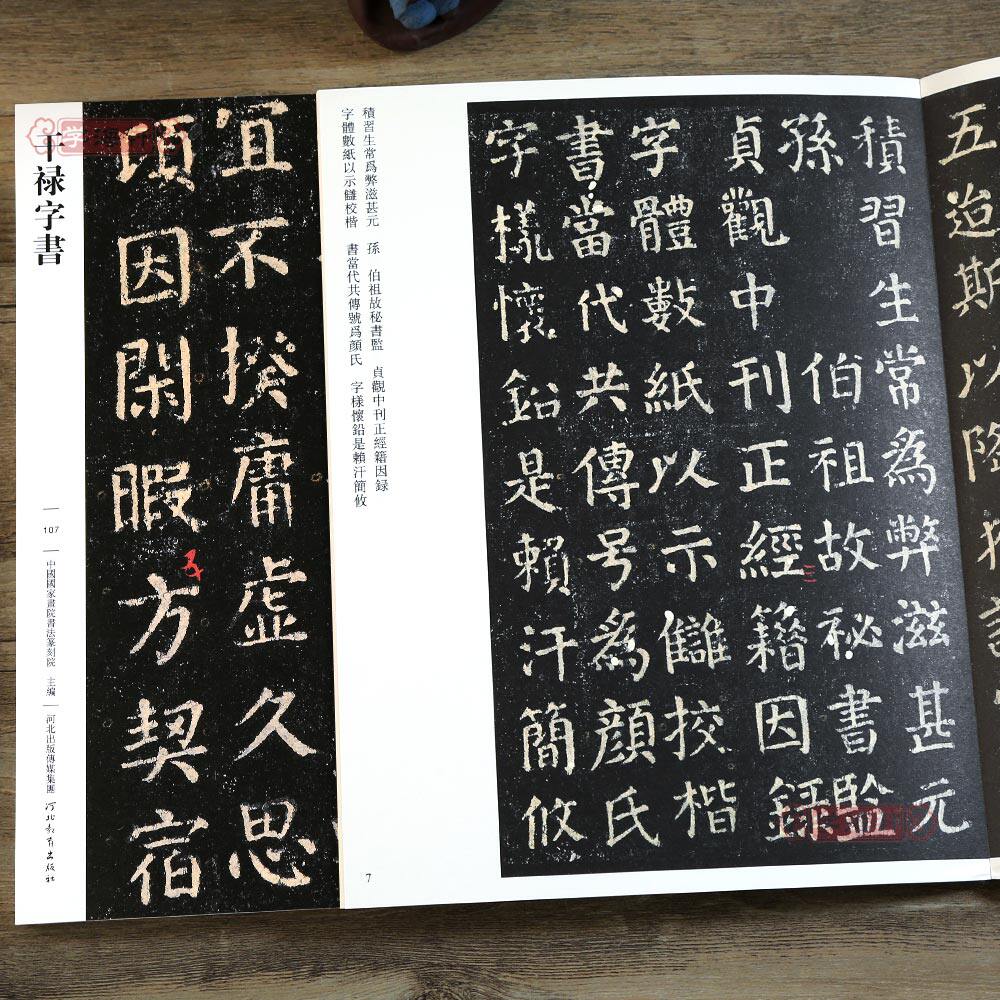 干禄字書
107
中國國家書院書法篆刻院 主编
河北出版傳媒集團
河北教育出版社
宜不揆庸虚久思
頃因閑暇方契宿
五迨斯以降
積習生常為弊滋甚元
孫 伯祖故祕書監
貞觀中刊正經籍因録
字體數紙以示讎挍楷
書當代共傳号為顔氏
字樣懷鉛是賴汗簡攸
積習生常爲弊滋甚元 孫 伯祖故秘書監 貞觀中刊正經籍因録
字體數紙以示讎校楷 書當代共傳號爲顔氏 字樣懷鉛是賴汗簡攸
7